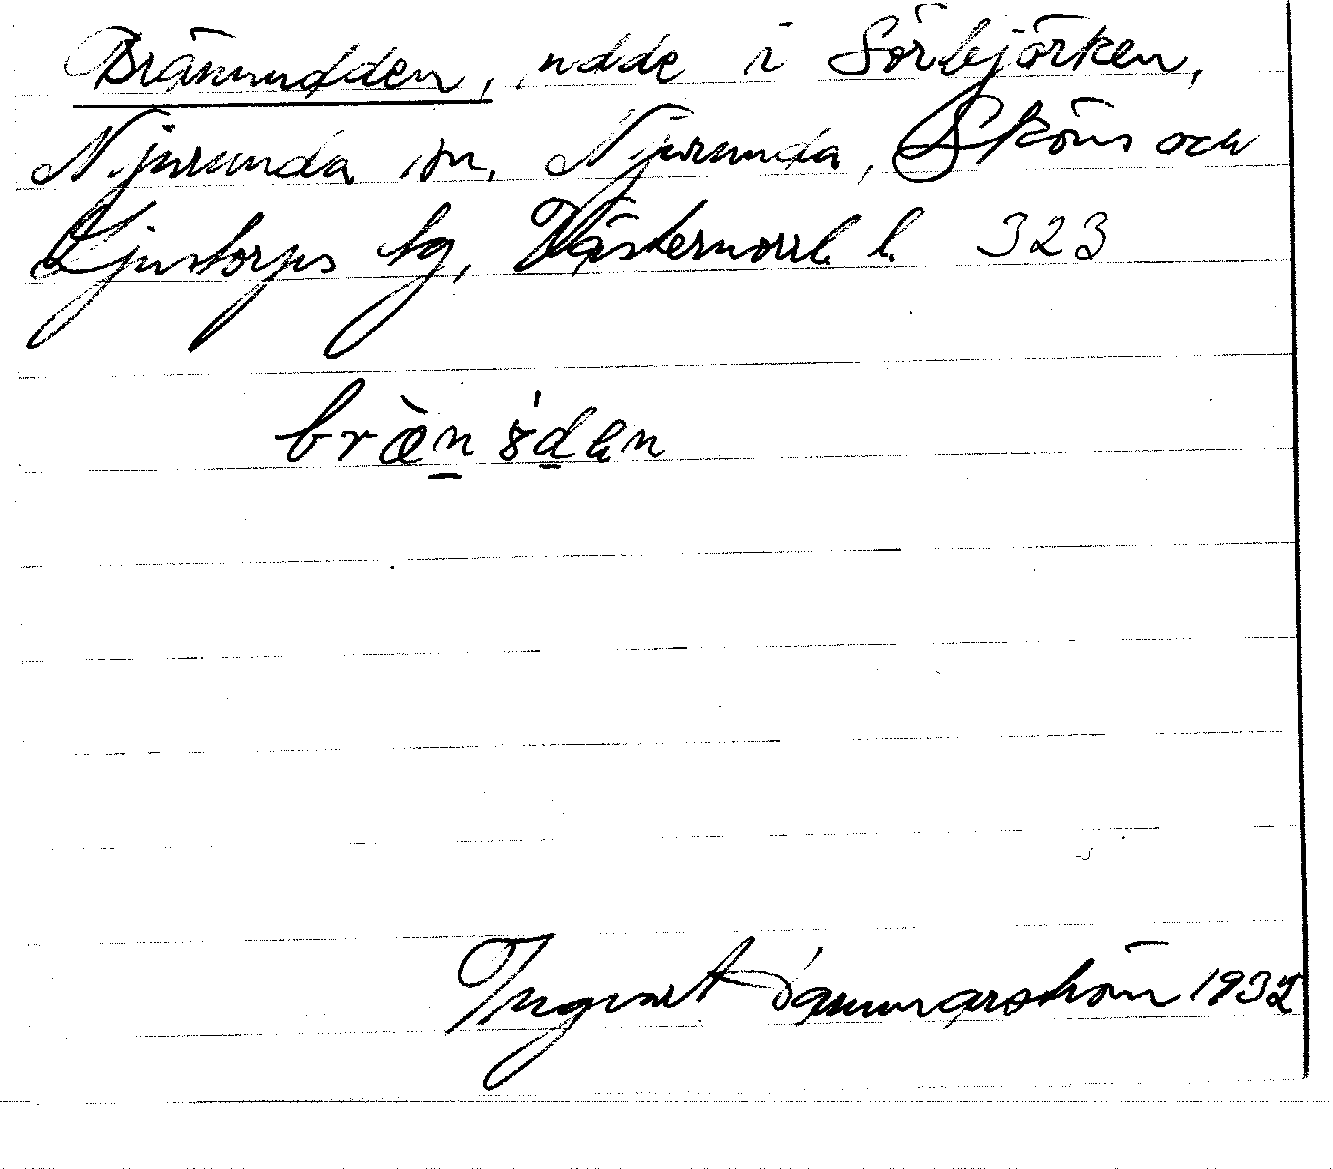 Brännudden, udde i Sörbjörken,
Njurunda sn, Njurunda, Sköns och
Ljustorps tg, Västernorrl. l. 323
bræ̀n ɤ́den
Ingvart Hammarström 1932